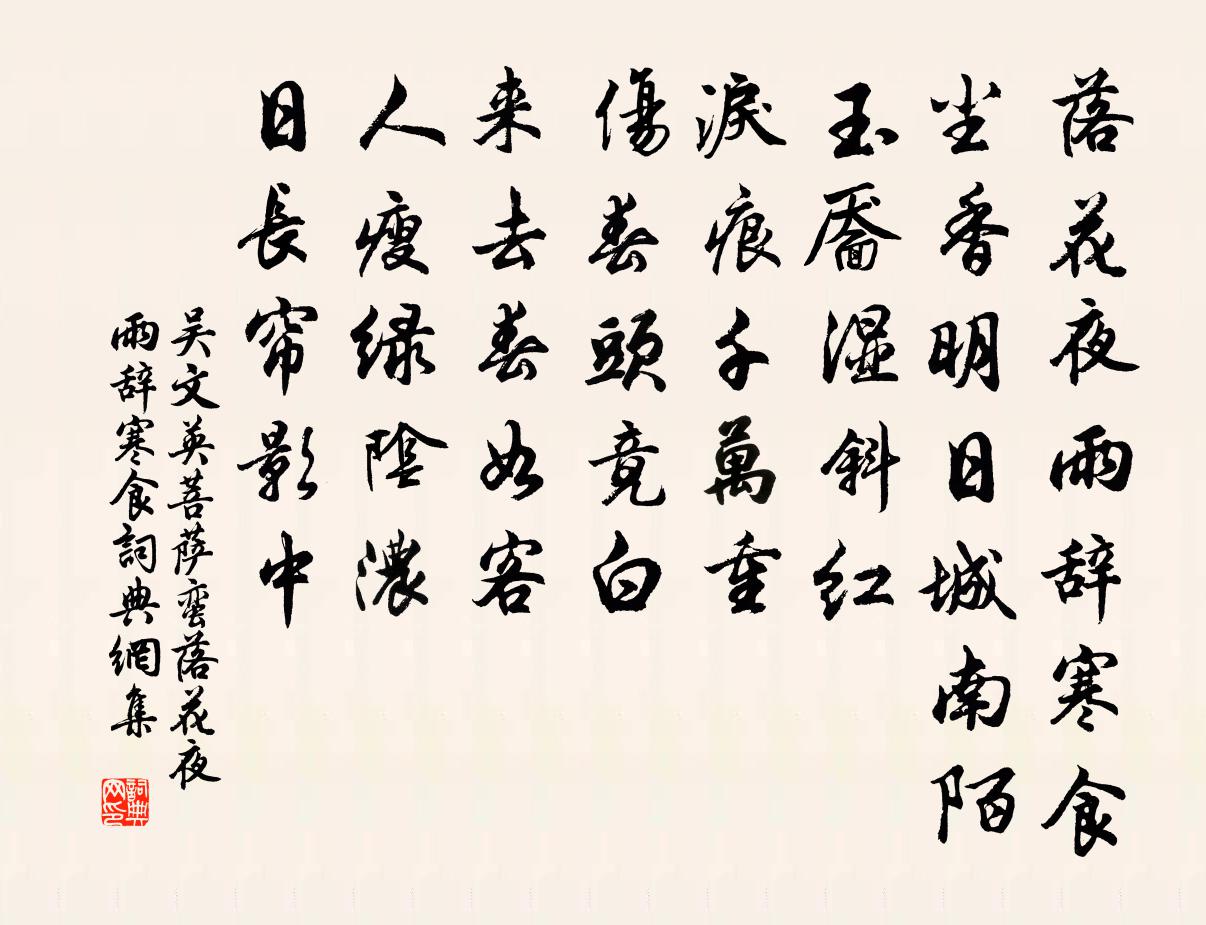 落花夜雨辞寒食
尘香明日城南陌
玉靥湿斜红
淚痕千萬重
傷春頭竟白
来去春如客
人瘦绿陰濃
日長帘影中
吴文英菩萨蛮落花夜
雨辞寒食詞典網集
詞典网印